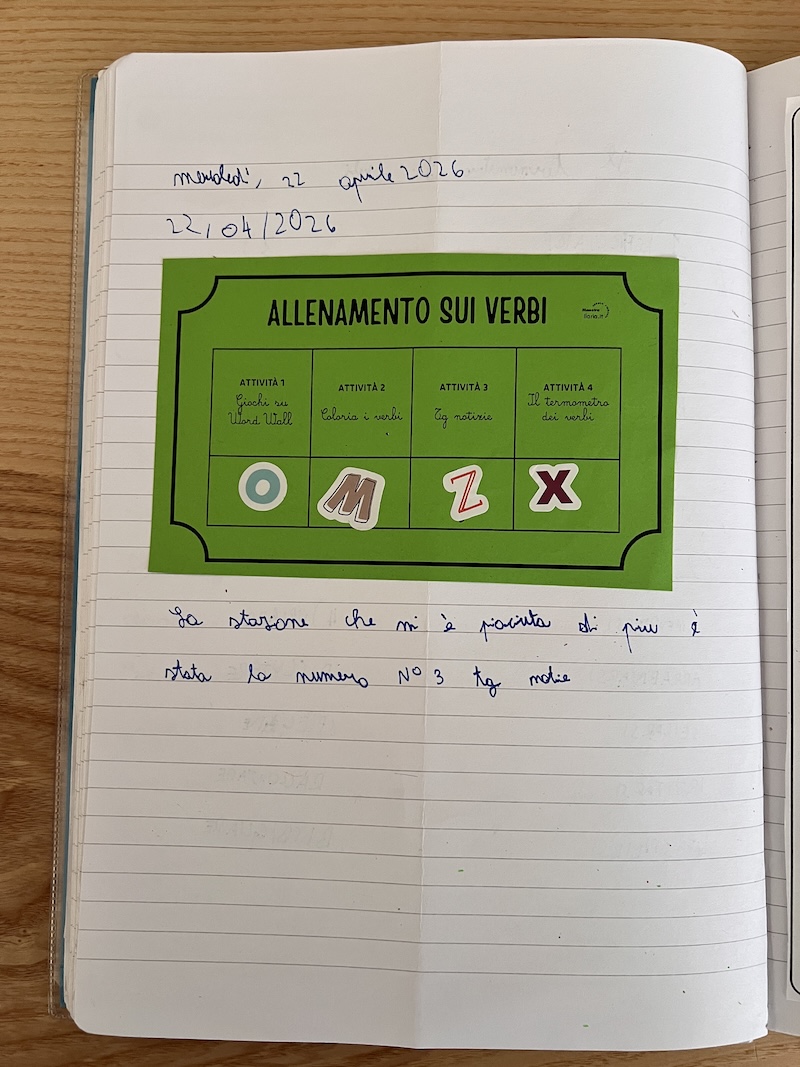 mercoledì, 22 aprile 2026
22/04/2026
ALLENAMENTO SUI VERBI
Maestra
Ilaria.it
ATTIVITÀ 1
Giochi su
Word Wall
ATTIVITÀ 2
Coloria i verbi
ATTIVITÀ 3
Tg notizie
ATTIVITÀ 4
Il termometro
dei verbi
O
M
Z
X
La stazione che mi è piaciuta di piu è
stata la numero N° 3 tg notie